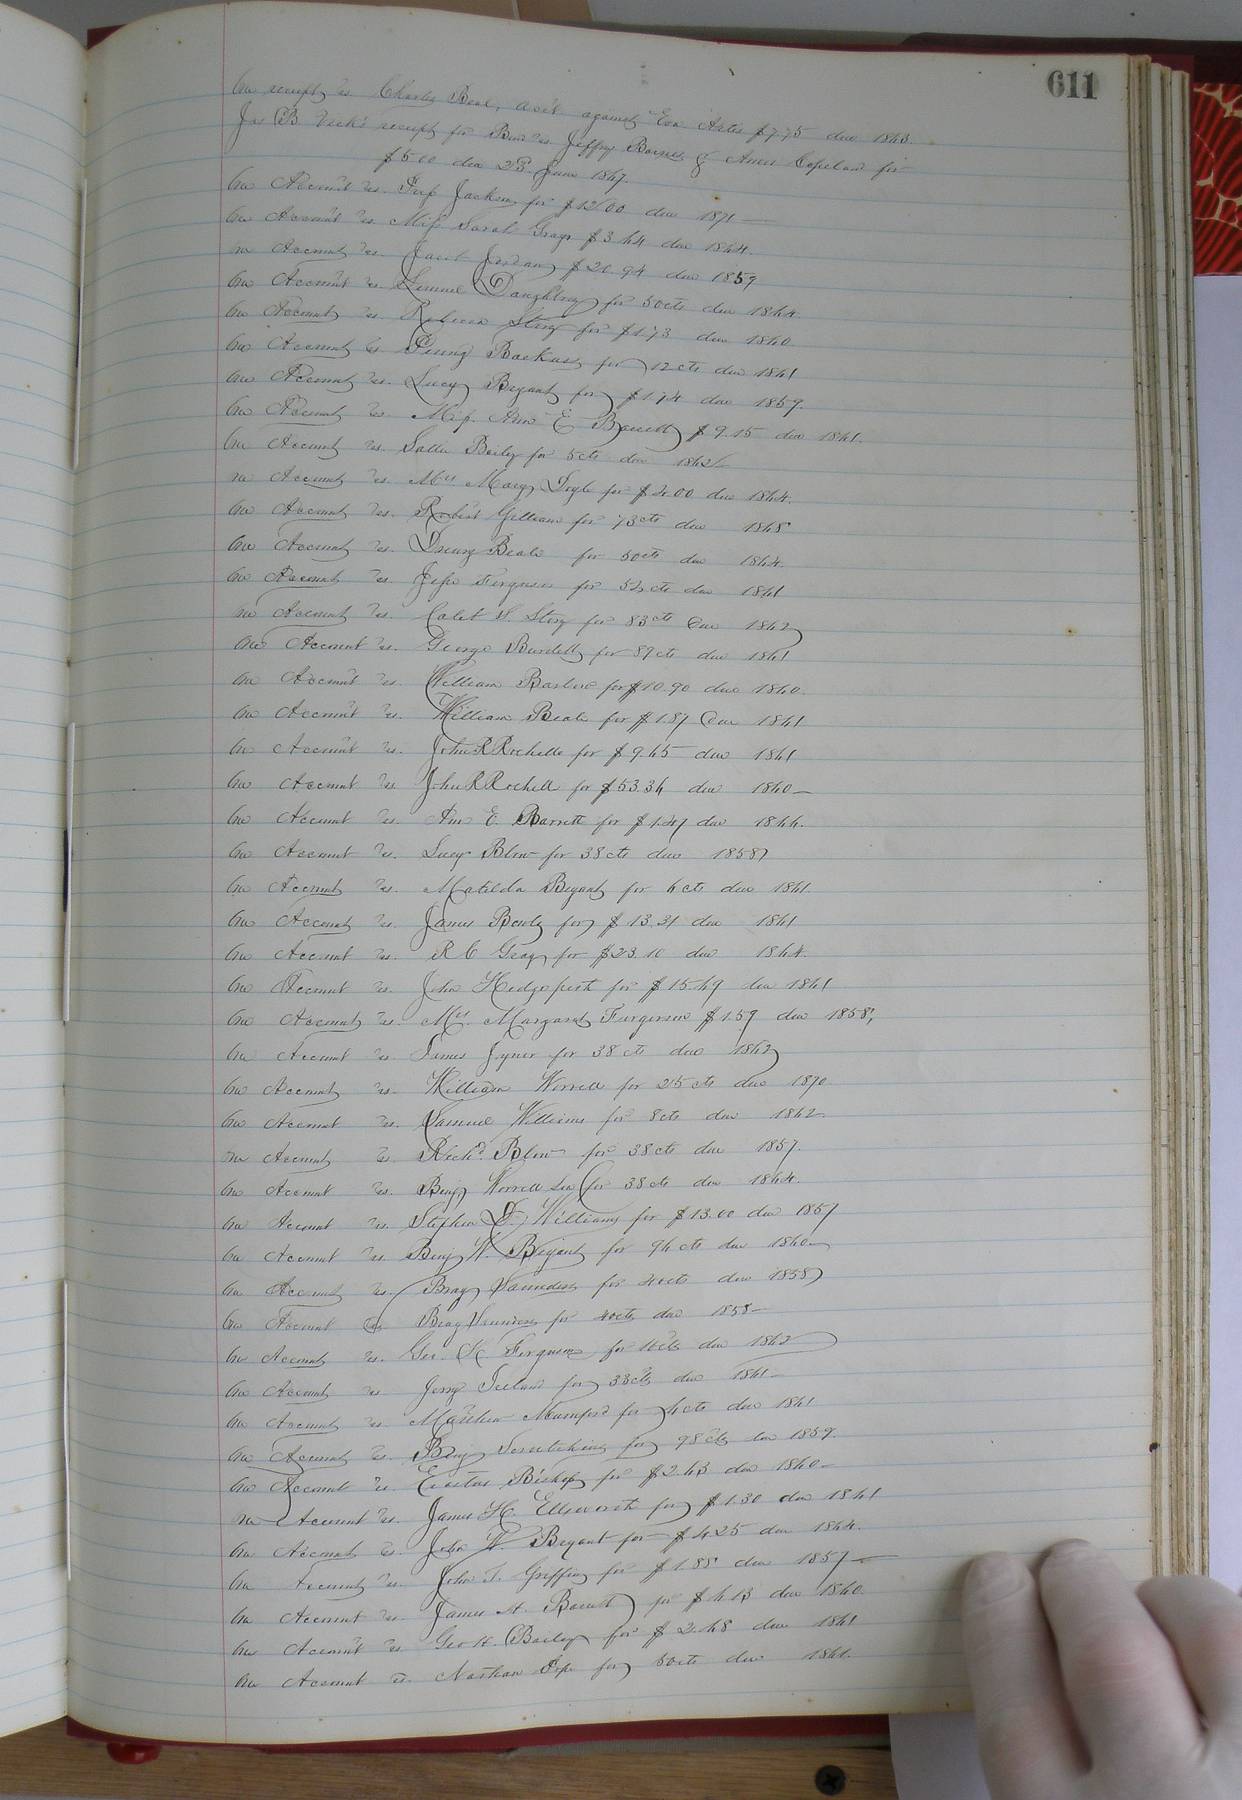 611
One receipt vs. Charles Beal, acct against Eva Artis $7.75 due 1863.
Jas B Vick's receipt for Bond vs. Jeffrey Barnes & Amos Copeland for
$5.00 due 23 June 1867.
One Account vs. Jackson for $12.00 due 1871
One Account vs. Miss Sarah Gray $3 64 due 1864.
One Account vs. Jacob Jordan $20.94 due 1859
One Account vs. Lemuel Daughtrey for 50cts due 1864.
One Account vs. Rebecca Story for $1.73 due 1860
One Account vs Penny Backus for 12 cts due 1861
One Account vs. Lucy Bryant for $1.74 due 1859.
One Account vs. Miss. Ann E Barrett $9.15 due 1861.
One Account vs. Sallie Bailey for 5cts due 1862
One Account vs. Mrs Mary Doyle for $2.00 due 1864.
One Account vs. Robert Gilliam for 73cts due 1868
One Account vs. Drewry Beale for 50cts due 1864.
One Account vs. Jesse Ferguson for 52cts due 1861
One Account vs. Caleb S. Story for 83cts Due 1862
One Account vs. George Burdett for 89cts due 1861
One Account vs. William Barlow for $10.90 due 1860.
One Account vs. William Beale for $1.87 Due 1861
One Account vs. John R Rochelle for $9.65 due 1861
One Account vs. John R Rochell for $53.36 due 1860
One Account vs. Ann E. Barrett for $1.27 due 1864.
One Account vs. Lucy Blow for 38cts due 1858
One Account vs. Matilda Bryant for 6cts due 1861.
One Account vs. James Bently for $13.31 due 1861
One Account vs. R C Gray for $23.10 due 1864.
One Account vs. John Hedgepeth for $15.69 due 1861
One Account vs. Mrs. Margaret Furgerson $1.59 due 1858,
One Account vs. James Joyner for 38 cts due 1862
One Account vs. William Worrell for 25 cts due 1870
One Account vs. Samuel Williams for 8cts due 1862.
One Account vs Richd. Blow for 38cts due 1857.
One Account vs. Benj Worrell for 38cts due 1864.
One Account vs. Stephen D. Williams for $13.00 due 1857
One Account vs. Benj W. Bryant for 96 cts due 1860
One Account vs. Bray Saunders for 40cts due 1858
One Account vs Bray Saunders for 40cts due 1858
One Account vs. Geo. K Ferguson for due 1862
One Account vs Jerry Ireland for 33cts due 1861
One Account vs Matthew Mumford for 6cts due 1861
One Account vs. Benj Scrutchins for 98cts due 1859.
One Account vs. Erastus Bishop for $2.63 due 1860
One Account vs. James H. Ellsworth for $1.30 due 1861
One Account vs. John W Bryant for $4.25 due 1864.
One Account vs. John T. Griffin for $1.88 due 1857
One Account vs. James A. Barrett for $6.13 due 1860
One Account vs Geo H. Bailey for $2.68 due 1861
One Account vs. Nathan Pope for 50cts due 1861.